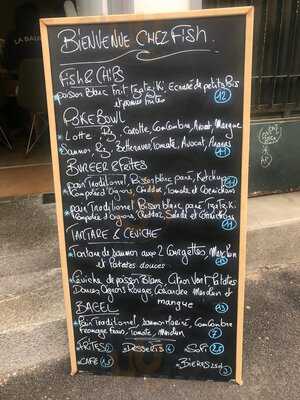 BIENVENUE CHEZ FISH.
FISH & CHIPS
poisson Blanc frit Tzatziki, Ecrasé de petits Pois
et pommes frites 12
POKE BOWL
Lotte Riz, Carotte, Concombre, Avocat, Mangue
Saumon Riz, Betterave, tomate, Avocat, Ananas
11
BURGER & FRITES
pain Traditionnel Poisson blanc pané, Ketchup
Compotée d'oignons Cheddar, Tomate et Cornichons
11
pain Traditionnel Poisson blanc pané, Tzatziki
Compotée d'oignons Cheddar, Salade et Cornichons
11
TARTARE & CEVICHE
Tartare de saumon aux 2 Courgettes,
et Patates douces
Ceviche de poisson Blanc Citron Vert Patates
Douces Oignons Rouges Coriandre et
mangue 13
BAGEL
Pain Traditionnel saumon fumé, Concombre
fromage frais, Tomate, 7
FRITES 2
DESSERTS
SOFT
CAFÉ
BIERES 25cl 3